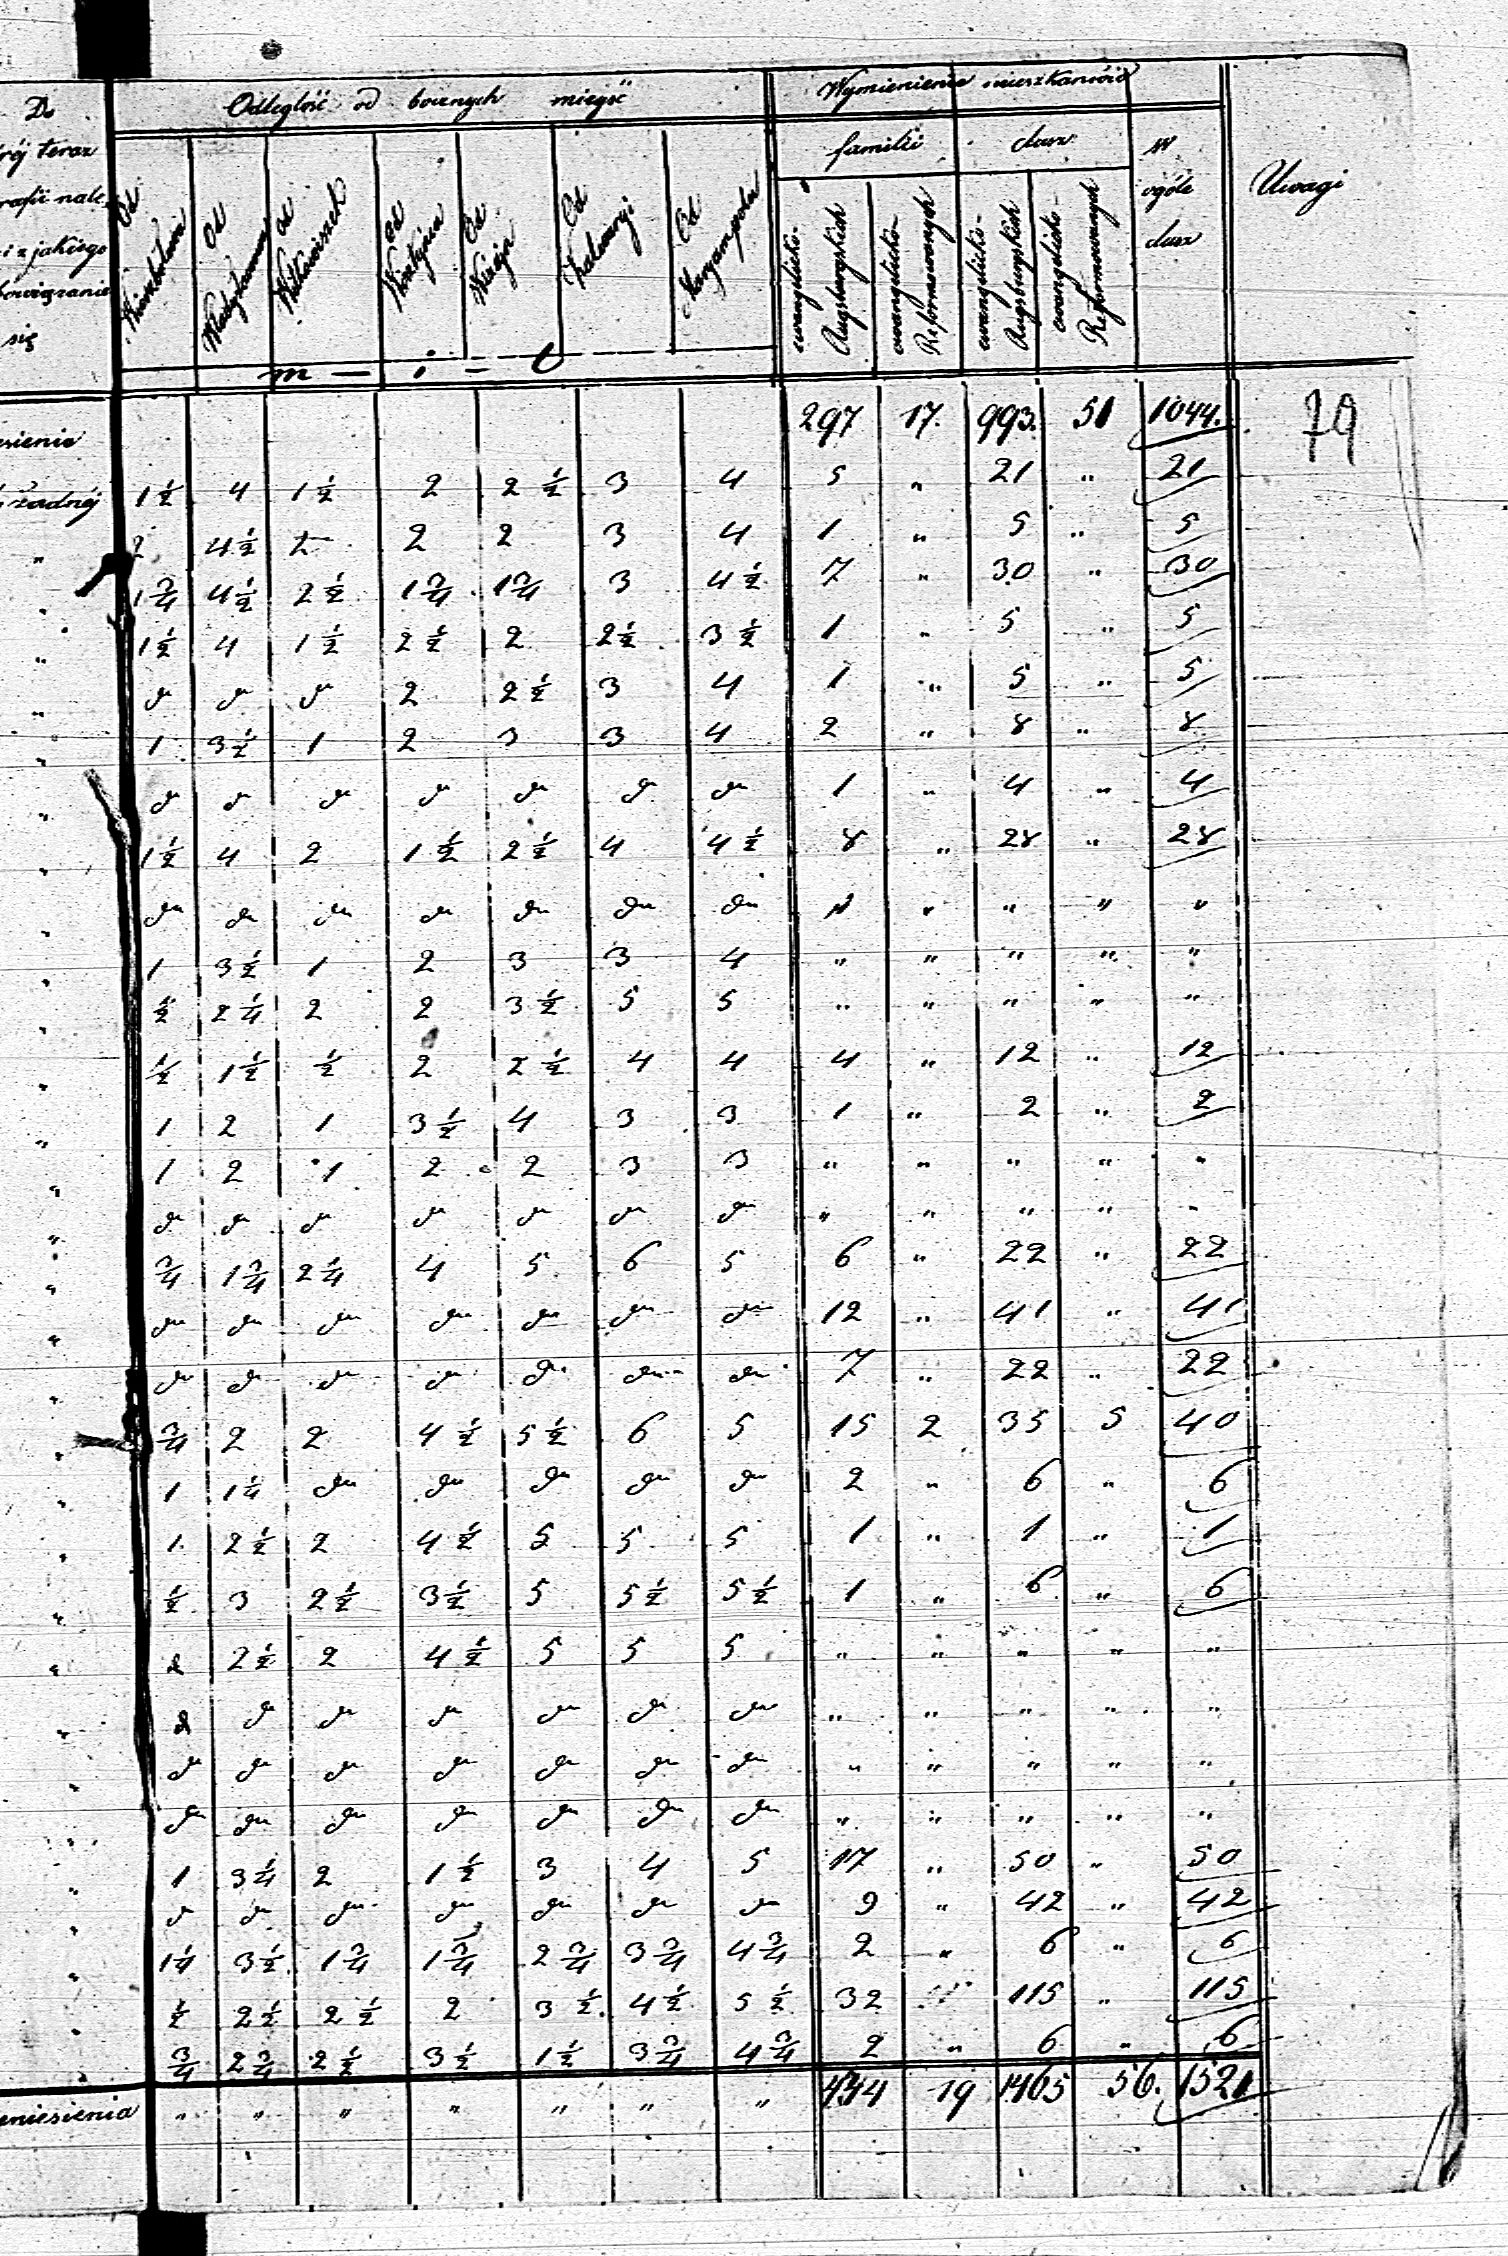 Do Odległość od bocznych miejsc Wymienienie mieszkańców
rój teraz familii dusz w
rafii nale- ogóle Uwagi
i z jakiego dusz
powiązanie
się
Od Wierzbołowa Od Władysławowa Od Wiłkowiszek Od Wisztyńca Od Wiżajn Od Kalwaryi Od Maryampola ewangelicko-Augsburgskich ewangelicko-Reformowanych ewangelicko-Augsburgskich ewangelicko-Reformowanych
m – i – l
esienie 297 17. 993. 51 1044. 79
żadnéj 1½ 4 1½ 2 2½ 3 4 5 „ 21 „ 21
„ 2 4½ 2 2 2 3 4 1 „ 5 „ 5
„ 1¾ 4½ 2½ 1¾ 1¾ 3 4½ 7 „ 30 „ 30
„ 1½ 4 1½ 2½ 2 2½ 3½ 1 „ 5 „ 5
„ d° d° d° 2 2½ 3 4 1 „ 5 „ 5
„ 1 3½ 1 2 3 3 4 2 „ 8 „ 8
„ d° d° d° d° d° d° d° 1 „ 4 „ 4
„ 1½ 4 2 1½ 2½ 4 4½ 8 „ 28 „ 28
„ d° d° d° d° d° d° d° „ „ „ „ „
„ 1 3½ 1 2 3 3 4 „ „ „ „ „
„ ½ 2¼ 2 2 3½ 5 5 „ „ „ „ „
„ ½ 1½ ½ 2 2½ 4 4 4 „ 12 „ 12
„ 1 2 1 3½ 4 3 3 1 „ 2 „ 2
„ 1 2 1 2 2 3 3 „ „ „ „ „
„ d° d° d° d° d° d° d° „ „ „ „ „
„ ¾ 1¾ 2¼ 4 5 6 5 6 „ 22 „ 22
„ d° d° d° d° d° d° d° 12 „ 41 „ 41
„ d° d° d° d° d° d° d° 7 „ 22 „ 22
„ ¾ 2 2 4½ 5½ 6 5 15 2 35 5 40
„ 1 1¼ d° d° d° d° d° 2 „ 6 „ 6
„ 1 2½ 2 4½ 5 5 5 1 „ 1 „ 1
„ ½ 3 2½ 3½ 5 5½ 5½ 1 „ 6 „ 6
„ 2 2½ 2 4½ 5 5 5 „ „ „ „ „
„ 2 d° d° d° d° d° d° „ „ „ „ „
„ d° d° d° d° d° d° d° „ „ „ „ „
„ d° d° d° d° d° d° d° „ „ „ „ „
„ 1 3¼ 2 1½ 3 4 5 17 „ 50 „ 50
„ d° d° d° d° d° d° d° 9 „ 42 „ 42
„ 1¼ 3½ 1¾ 1¾ 2¾ 3¾ 4¾ 2 „ 6 „ 6
„ ½ 2½ 2½ 2 3½ 4½ 5½ 32 „ 115 „ 115
„ ¾ 2¾ 2½ 3½ 1½ 3¾ 4¾ 2 „ 6 „ 6
eniesienia „ „ „ „ „ „ „ 434 19 1465 56. 1521